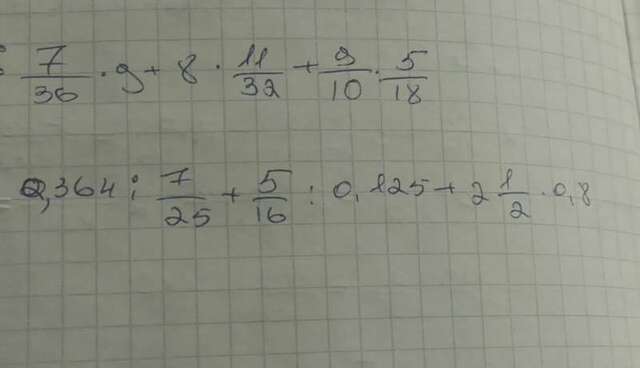 : 7/36 · 9 + 8 · 11/32 + 9/10 · 5/18
0,364 : 7/25 + 5/16 : 0,125 + 2 1/2 · 0,8